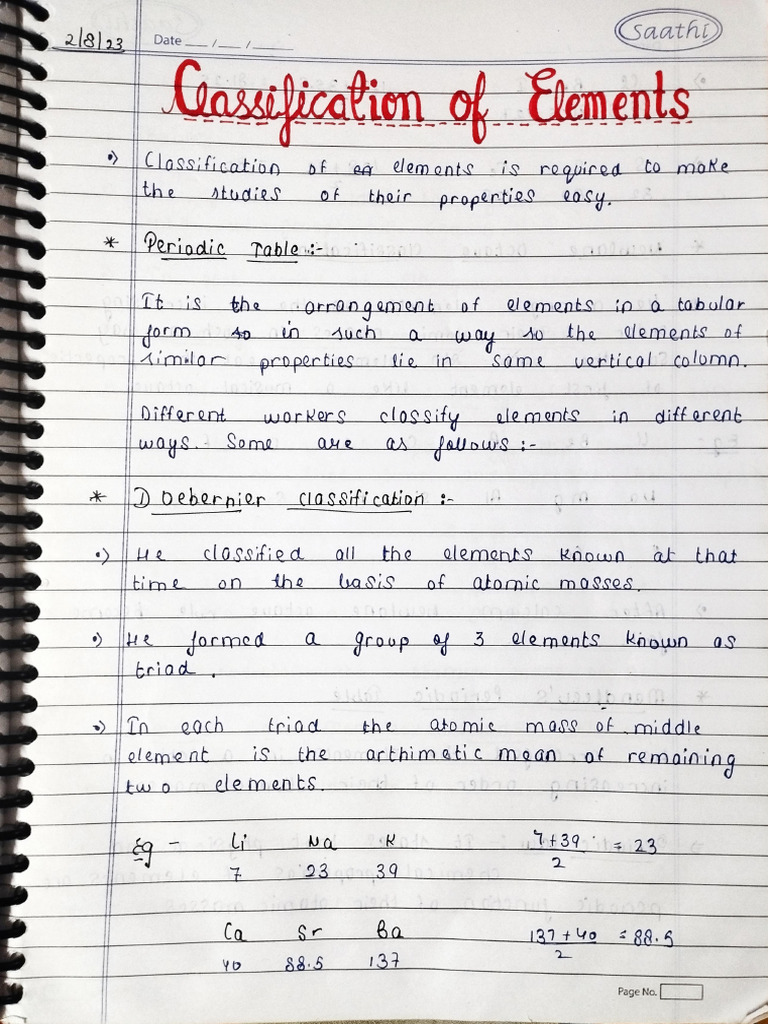 2/8/23 Date __/__/____ Saathi
Classification of Elements
•) Classification of elements is required to make
the studies of their properties easy.
* Periodic Table :-
It is the arrangement of elements in a tabular
form in such a way so the elements of
similar properties lie in same vertical column.
Different workers classify elements in different
ways. Some are as follows :-
* Doebernier classification :-
•) He classified all the elements known at that
time on the basis of atomic masses.
•) He formed a group of 3 elements known as
triad.
•) In each triad the atomic mass of middle
element is the arthimatic mean of remaining
two elements.
Eg - Li Na K 7+39/2 = 23
7 23 39
Ca Sr Ba 137+40/2 = 88.5
40 88.5 137
Page No.